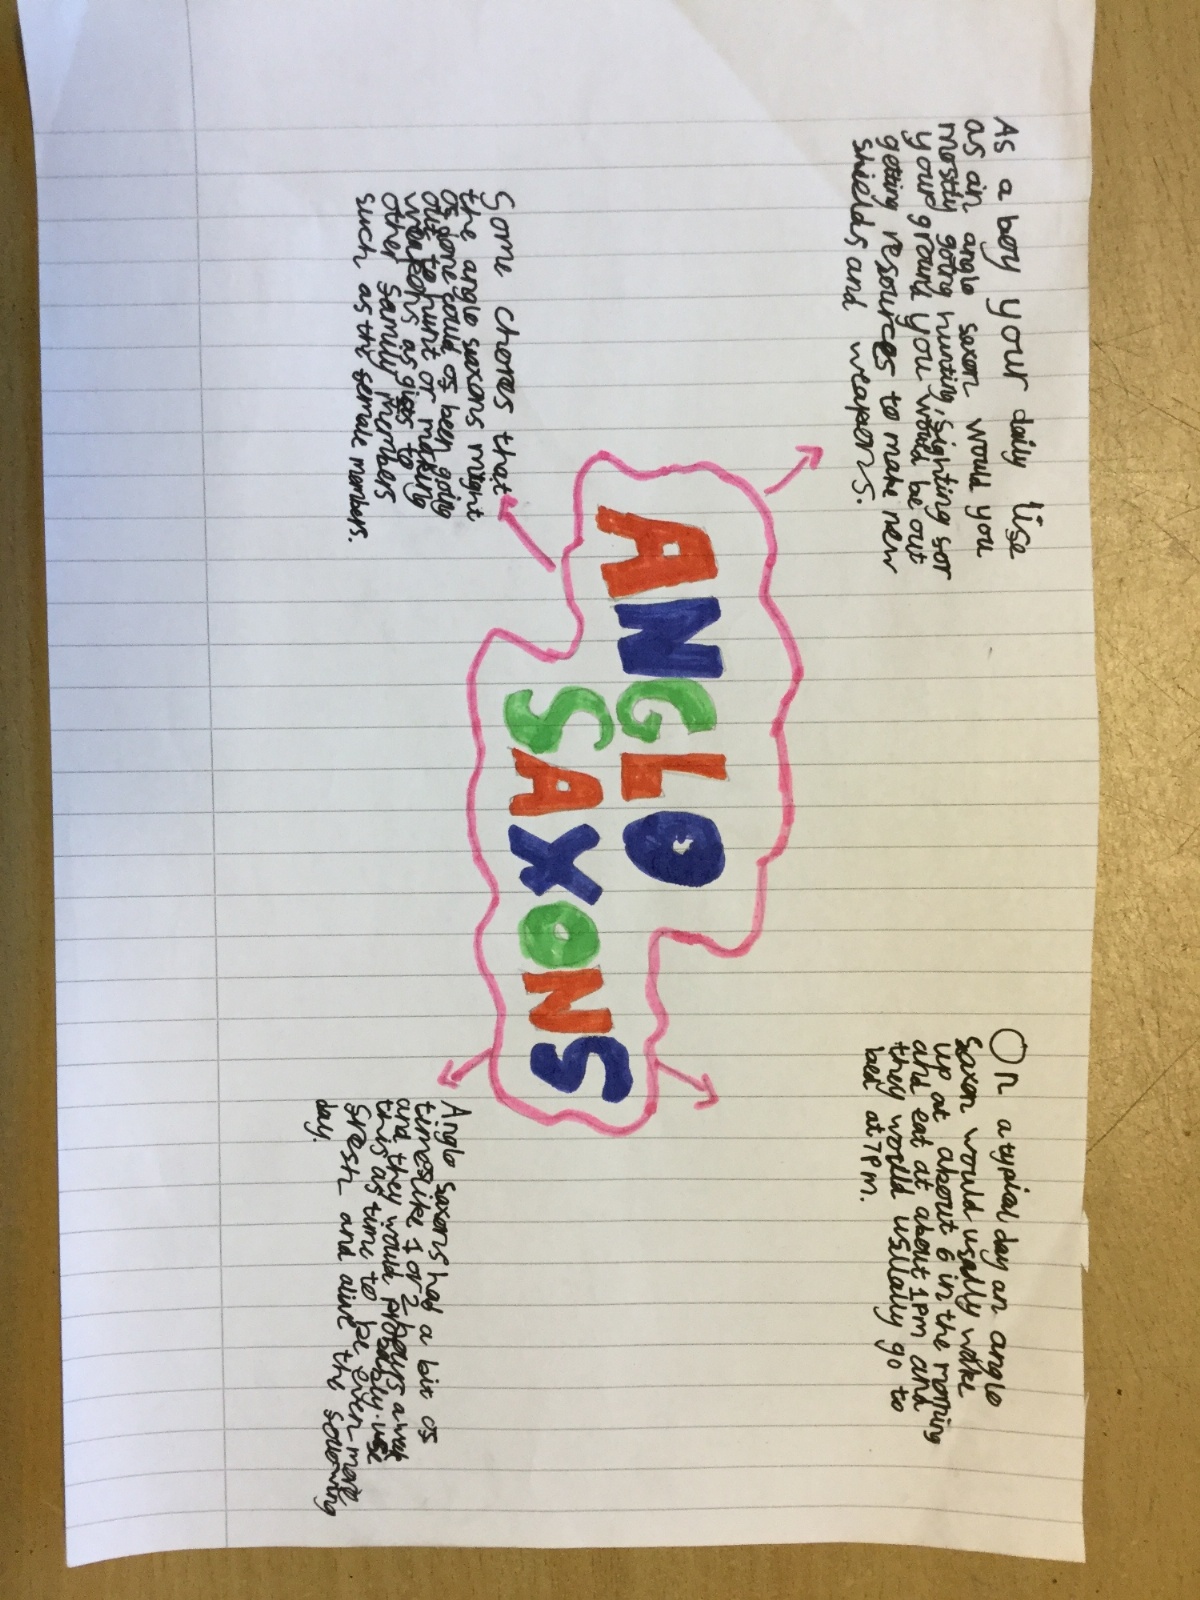 As a boy your daily life
as an anglo saxon would you
mostly going hunting, fighting for
your ground you would be out
getting resources to make new
shields and weapons.
On a typical day an anglo
saxon would usally wake
up at about 6 in the morning
and eat at about 1pm and
they would usually go to
bed at 7pm.
ANGLO
SAXONS
Some chores that
the anglo saxons might
of done could of been going
out to hunt or making
weapons as gifts to
other family members
such as the female members.
Anglo saxons had a bit of
time like 1 or 2 hours
and they would probably use
this as time to be even more
fresh and alive the following
day.